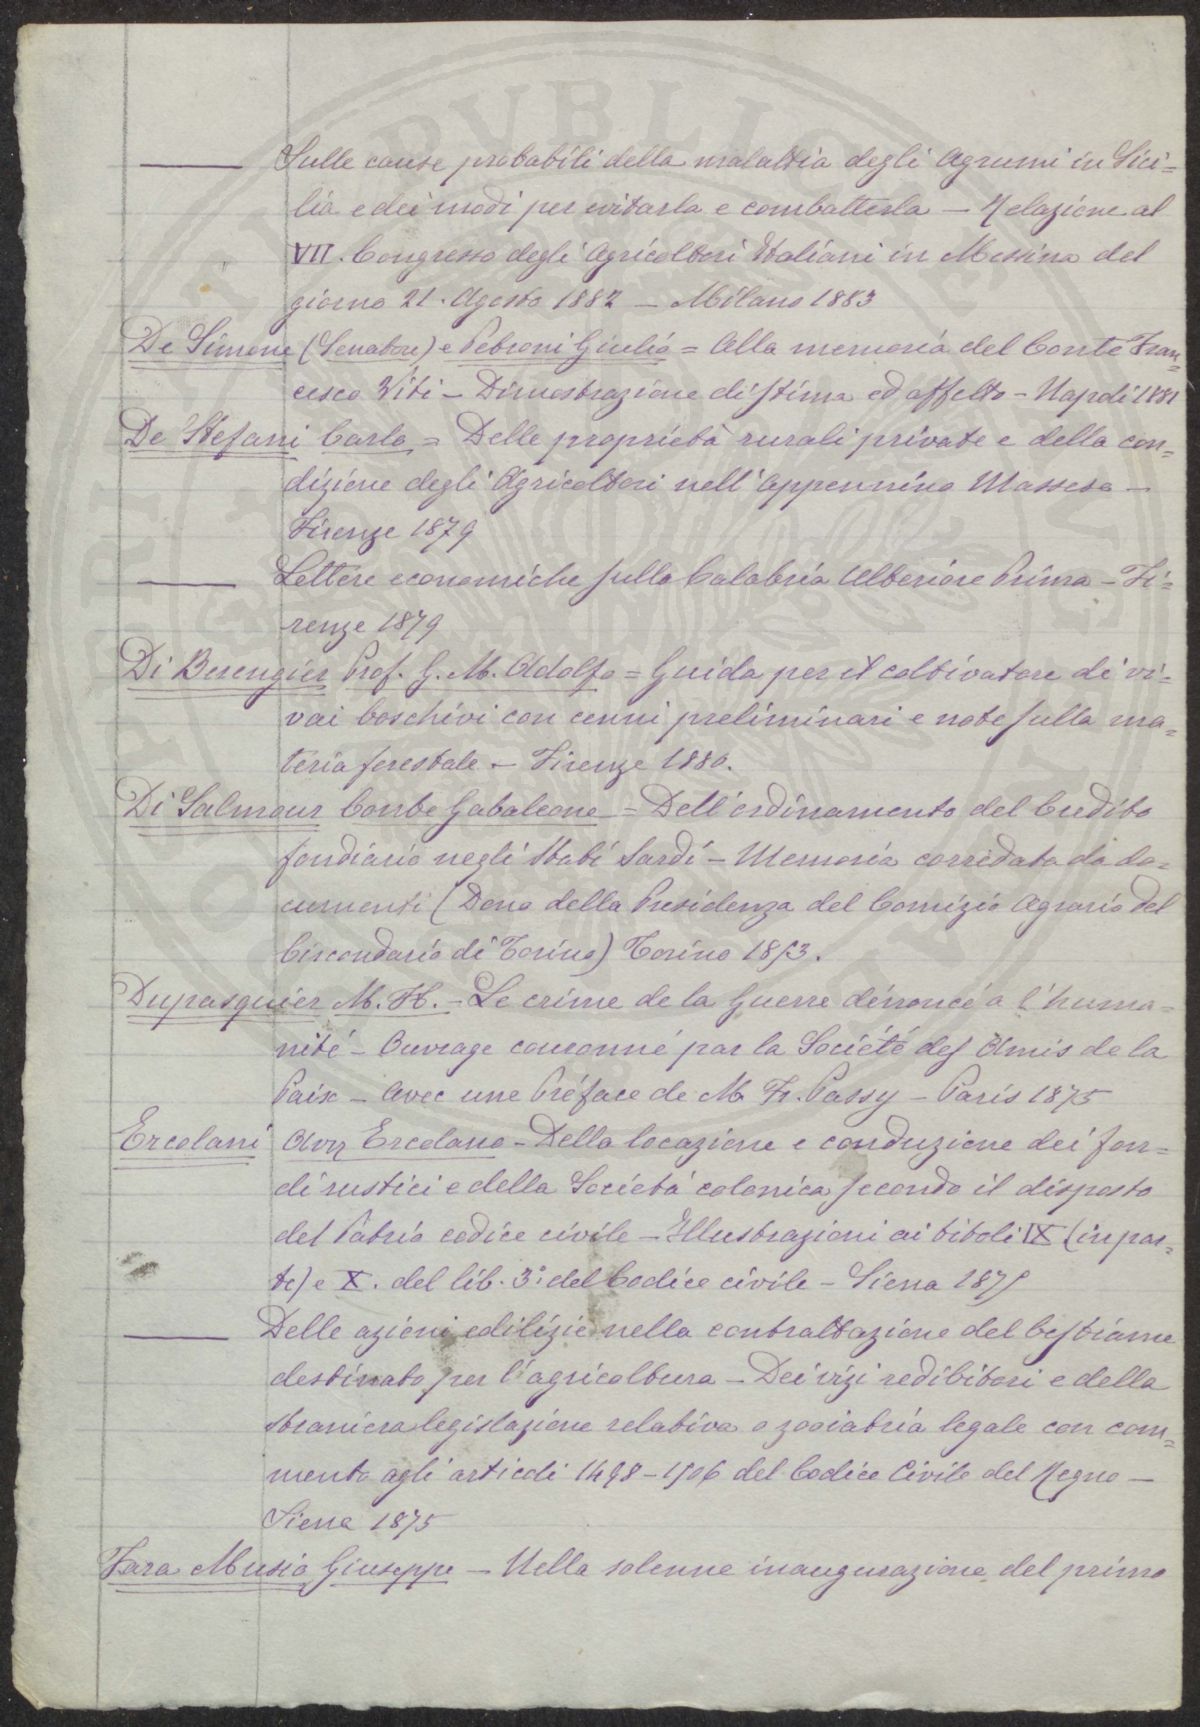 Sulle cause probabili della malattia degli Agrumi in Sici=
lia e dei modi per evitarla e combatterla — Relazione al
VII. Congresso degli Agricoltori Italiani in Messina del
giorno 21. Agosto 1882 — Milano 1883
De Simone (Senatore) e Petroni Giulio = Alla memoria del Conte Fran=
cesco Viti — Dimostrazione di stima ed affetto — Napoli 1881
De Stefani Carlo = Delle proprietà rurali private e della con=
dizione degli Agricoltori nell'Appennino Massese —
Firenze 1879
Lettere economiche sulla Calabria Ulteriore Prima — Fi=
renze 1879
Di Berengier Prof. G. M. Adolfo = Guida per il coltivatore di vi=
vai boschivi con cenni preliminari e note sulla ma=
teria forestale — Firenze 1880.
Di Salmour Conte Gabaleone = Dell'ordinamento del Credito
fondiario negli Stati Sardi — Memoria corridata da do=
cumenti (Dono della Presidenza del Comizio Agrario del
Circondario di Torino) Torino 1853.
Dupasquier M. H. — Le crime de la Guerre dénoncé a l'huma=
nité — Ouvrage couronné par la Société des Amis de la
Paix — Avec une Préface de M. Fr. Passy — Paris 1875
Ercolani Avv. Ercolano — Della locazione e conduzione dei fon=
di rustici e della Società colonica secondo il disposto
del Patrio codice civile — Illustrazioni ai titoli IX (in par=
te) e X. del lib. 3.° del Codice civile — Siena 1875
Delle azioni edilizie nella contrattazione del bestiame
destinato per l'agricoltura — Dei vizi redibitori e della
straniera legislazione relativa o zooiatria legale con com=
mento agli articoli 1498–1506 del Codice Civile del Regno —
Siena 1875
Fara Musio Giuseppe — Nella solenne inaugurazione del primo